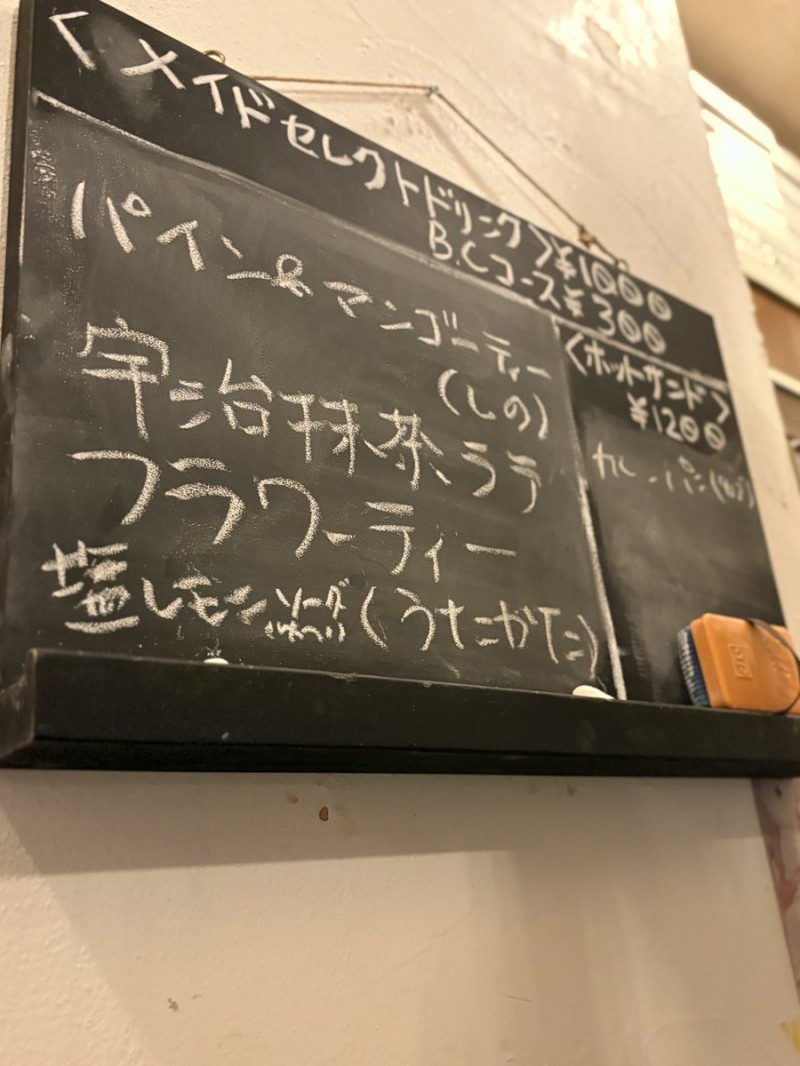 〈メイドセレクトドリンク〉¥1000
B.Cコース¥300
パイン&マンゴーティー
(しの)
宇治抹茶ラテ
フラワーティー
塩レモンソーダ(うたかた)
〈ホットサンド〉
¥1200
カレーパン